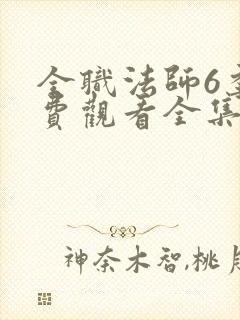 全職法師6
費觀看全集
神奈木智,桃月